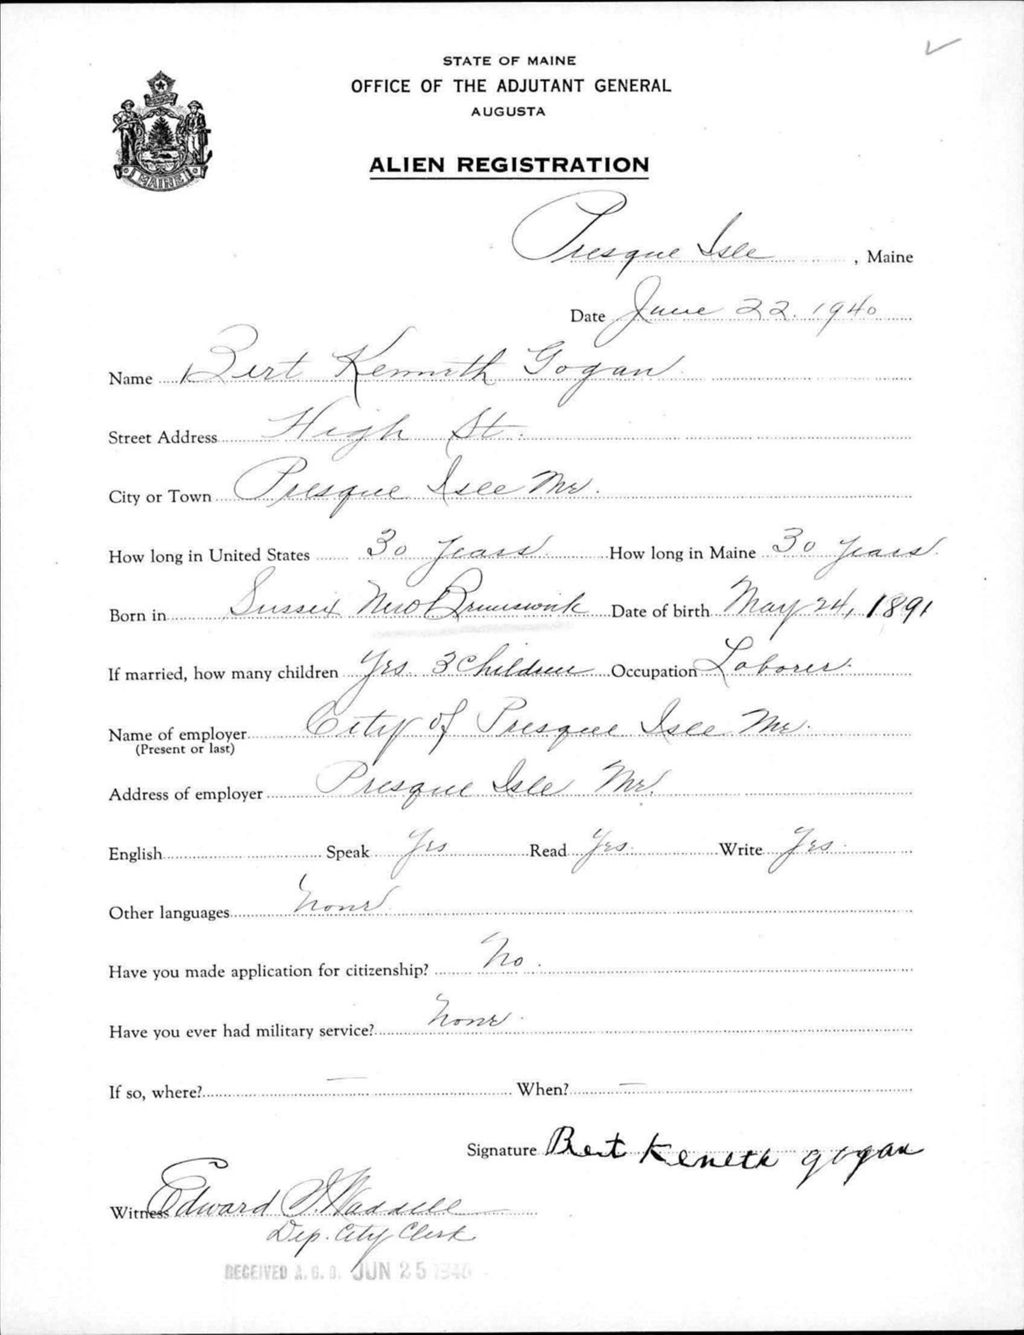 STATE OF MAINE
OFFICE OF THE ADJUTANT GENERAL
AUGUSTA
MAINE
ALIEN REGISTRATION
Presque Isle, Maine
Date June 22. 1940
Name Bert Kenneth Gogan
Street Address High St.
City or Town Presque Isle Me.
How long in United States 30 years How long in Maine 30 years
Born in Sussex New Brunswick Date of birth May 24, 1891
If married, how many children Yes 3 Children Occupation Laborer.
Name of employer City of Presque Isle Me.
(Present or last)
Address of employer Presque Isle Me.
English Speak Yes Read Yes Write Yes
Other languages None
Have you made application for citizenship? No.
Have you ever had military service? None.
If so, where? — When? —
Signature Bert Keneth gogan
Witness Edward
Dep. City Clerk
RECEIVED A.G.O. JUN 25 1940